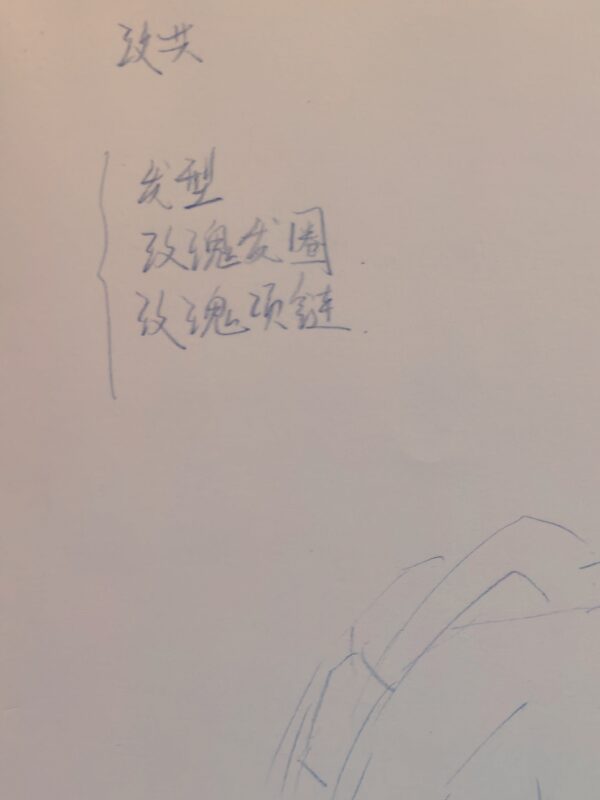 玫共
发型
玫瑰发圈.
玫瑰项链.